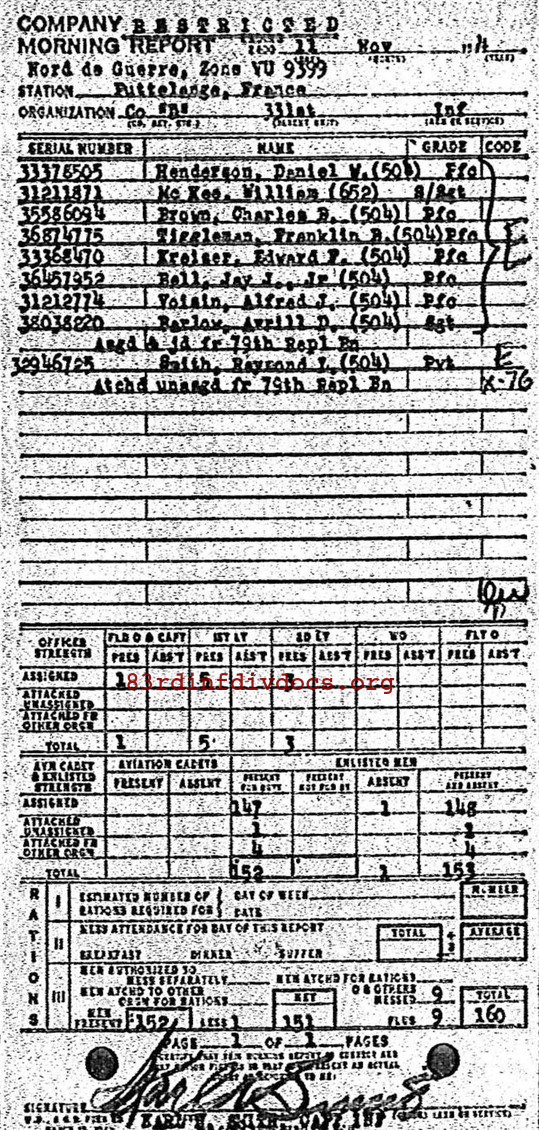 COMPANY RESTRICTED
MORNING REPORT 11 Nov
Nord de Guerre, Zone VU 9399
STATION Puttelange, France
ORGANIZATION Co "B" 331st Inf
SERIAL NUMBER NAME GRADE CODE
33378505 Henderson, Daniel W. (504) Pfc
31211871 Mc Kee, William (652) S/Sgt
35586094 Brown, Charles B. (504) Pfc
36874775 Tiggleman, Franklin B. (504) Pfc E
33368470 Kreiser, Edward F. (504) Pfc
36457952 Bell, Jay J., Jr (504) Pfc
31212774 Voisin, Alfred J. (504) Pfc
38038220 Barlow, Avrill D. (504) Sgt
Asgd & jd fr 79th Repl Bn
32946725 Smith, Raymond (504) Pvt E
Atchd unasgd fr 79th Repl Bn X-76
OFFICER STRENGTH FLD O & CAPT 1ST LT 2D LT WO FLT O
PRES ABS'T PRES ABS'T PRES ABS'T PRES ABS'T PRES ABS'T
ASSIGNED 1 5 3
83rdinfdivdocs.org
ATTACHED UNASSIGNED
ATTACHED FR OTHER ORGN
TOTAL 1 5 3
AVN CADET & ENLISTED STRENGTH AVIATION CADETS ENLISTED MEN
PRESENT ABSENT PRESENT FOR DUTY PRESENT NOT FOR DY ABSENT PRESENT AND ABSENT
ASSIGNED 147 1 148
ATTACHED UNASSIGNED 1 1
ATTACHED FR OTHER ORGN 4 4
TOTAL 152 1 153
RATIONS
I ESTIMATED NUMBER OF RATIONS REQUIRED FOR { DAY OF WEEK DATE NUMBER
II MESS ATTENDANCE FOR DAY OF THIS REPORT TOTAL AVERAGE
BREAKFAST DINNER SUPPER
III MEN AUTHORIZED TO MESS SEPARATELY MEN ATCHD FOR RATIONS
MEN ATCHD TO OTHER ORGN FOR RATIONS NET OTHERS MESSED 9 TOTAL
MEN PRESENT 152 LESS 1 151 PLUS 9 160
PAGE 1 OF 1 PAGES
SIGNATURE
KARL CAPT, INF